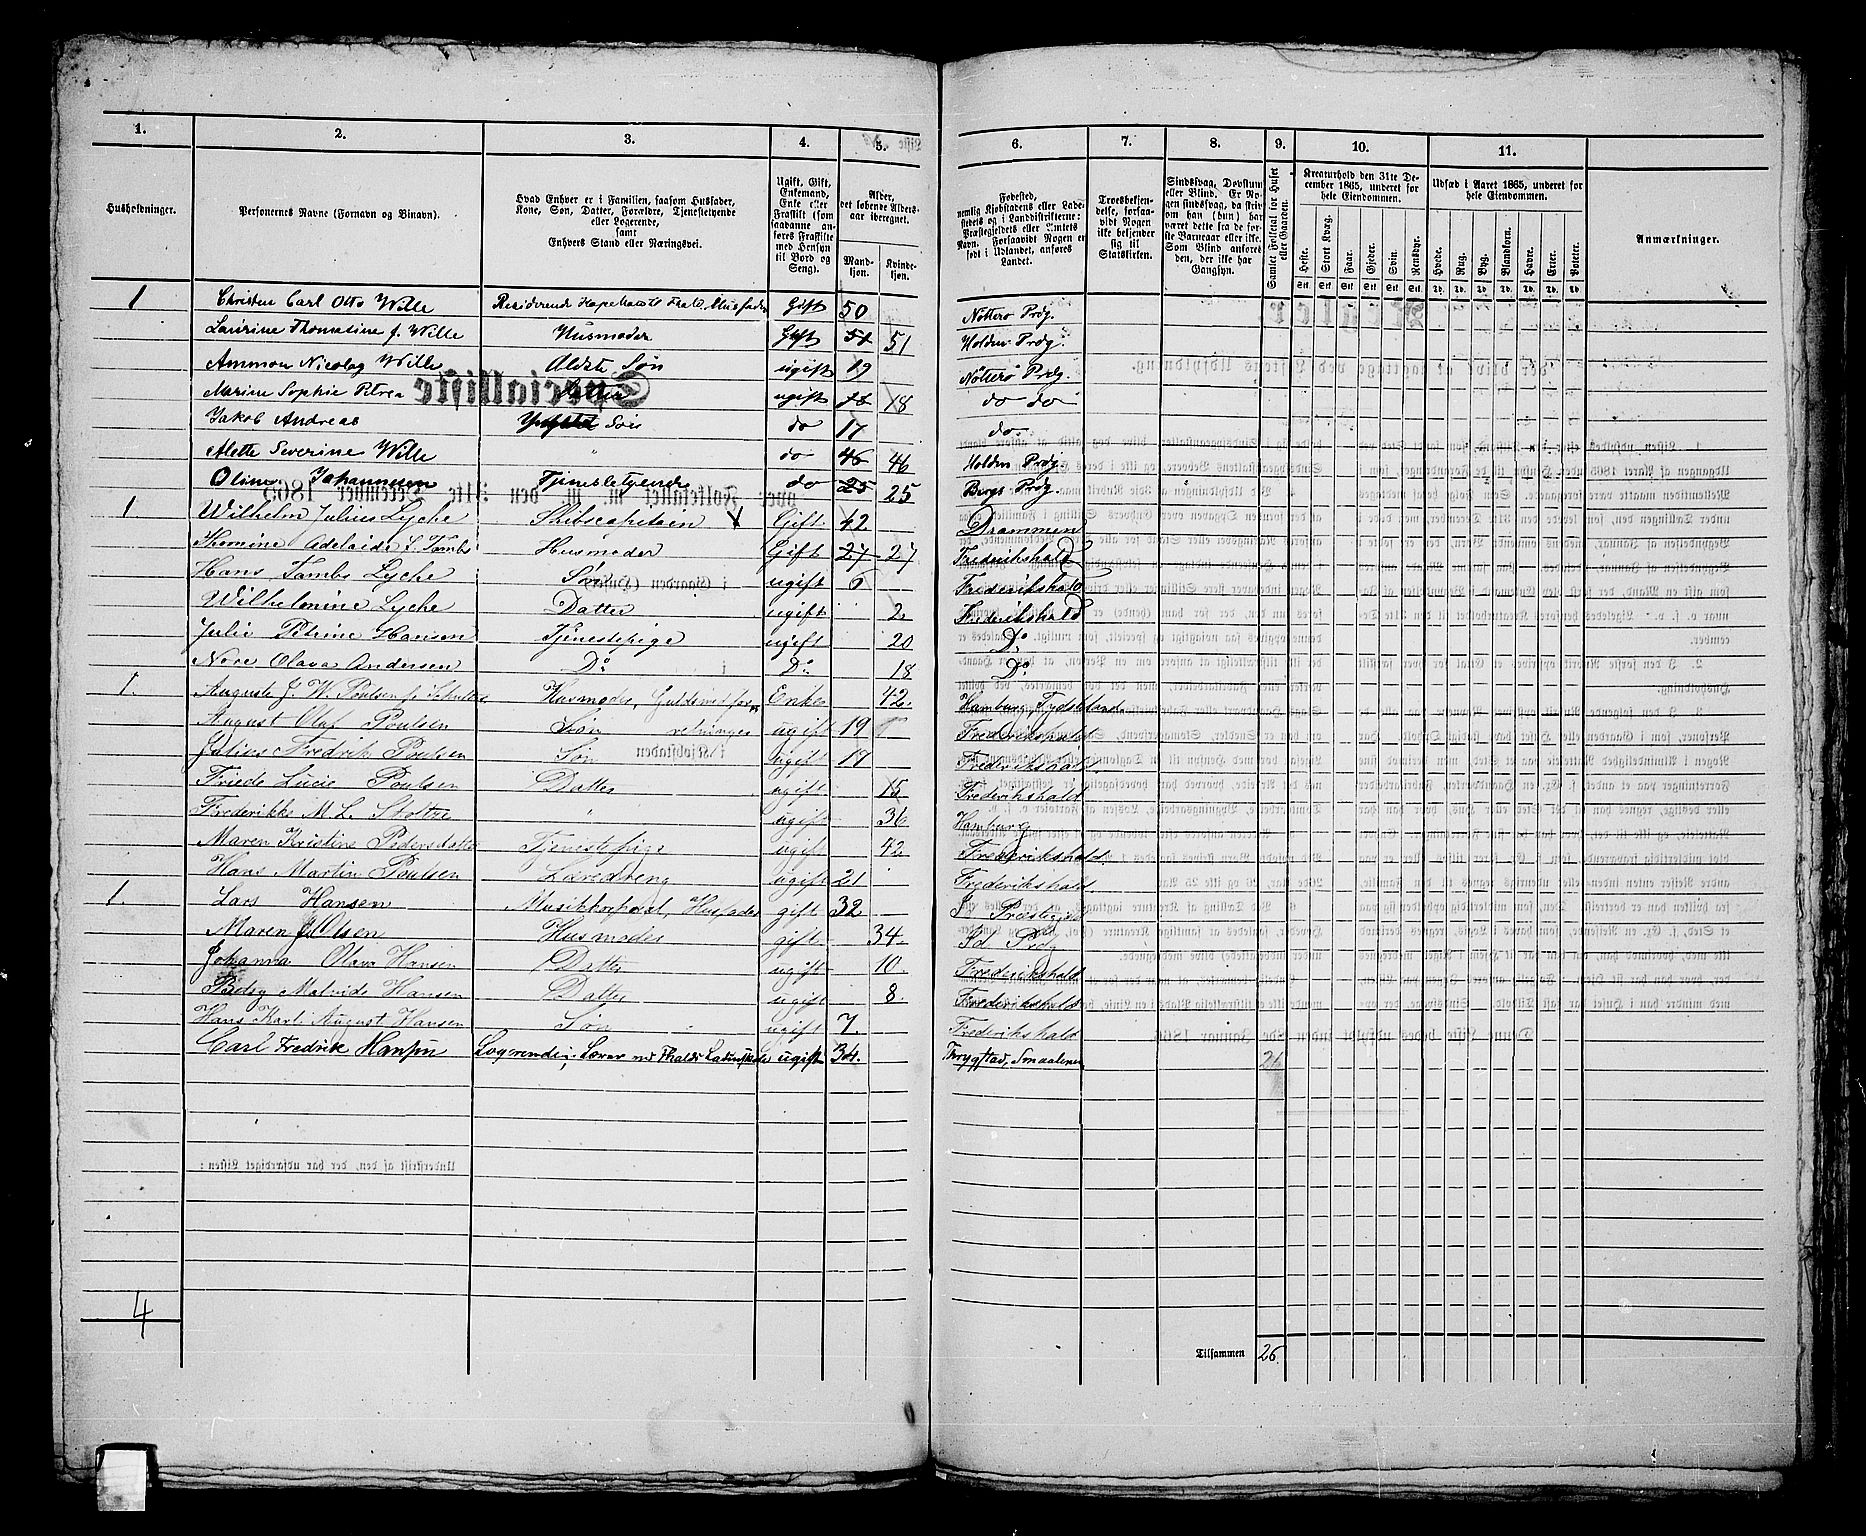 1. 2. 3. 4. 5. 6. 7. 8. 9. 10. 11.
Husholdninger.
Personernes Navne (Fornavn og Binavn).
Hvad Enhver er i Familien, saasom Husfader, Kone, Søn, Datter, Forældre, Tjenestetyende eller Logerende, samt Enhvers Stand eller Næringsvei.
Ugift, Gift, Enkemand, Enke eller Fraskilt (som saadanne anføres Fraskilte med Hensyn til Bord og Seng).
Alder, det løbende Aldersaar iberegnet.
Mandkjøn. Kvindekjøn.
Fødested, nemlig Kjøbstadens eller Ladestedets og i Landdistrikterne: Præstegjeldets eller Amtets Navn. Forsaavidt Nogen er født i Udlandet, anføres Landet.
Troesbekjendelse, forsaavidt Nogen ikke bekjender sig til Statskirken.
Sindssvag, Døvstum eller Blind. Er Nogen sindssvag, da skrives om han (hun) har været dette fra de første Barneaar eller ikke. Som Blind anføres den, der ikke har Gangsyn.
Samlet Folketal for Huset eller Gaarden.
Kreaturhold den 31te December 1865, underet for hele Eiendommen.
Heste. Stort Kvæg. Faar. Gjeder. Svin. Rensdyr.
Udsæd i Aaret 1865, underet for hele Eiendommen.
Hvede. Rug. Byg. Blandkorn. Havre. Erter. Poteter.
Anmærkninger.
1 Christen Carl Otto Wille Gift 50 Nøtterø Prdg.
Laurine Thomasine f. Wille Husmoder Gift 51 51 Holden Prdg.
Ammon Nicolay Wille Ældste Søn ugift 19 Nøtterø Prdg.
Marine Sophie Petrea Datter ugift 18 18 do do
Jakob Andreas Yngste Søn do 17 do
Alette Severine Wille " do 46 46 Holden Prdg.
Oline Johannesen Tjenestetyende do 25 25 Bergs Prdg
1 Wilhelm Julius Lyche Skibscapitaen Gift 42 Drammen
Thomine Adelaide L. Tambs Husmoder Gift 27 27 Frederikshald
Hans Tambs Lyche Søn ugift 6 Frederikshald
Wilhelmine Lyche Datter ugift 2. Frederikshald
Julie Petrine Hansen Tjenestepige ugift 20 Do
Olava Andersen Do Do 18 Do
1. Auguste J. W. Poulsen f. Husmoder, Guldsmedforretninger Enke 42. Hamburg, Tydskland
August Oluf Poulsen Søn ugift 19 Frederikshald
Julius Fredrik Poulsen Søn ugift 17 Frederikshald.
Friede Lucie Poulsen Datter ugift 15 Frederikshald
Frederikke M. L. Stoltze " ugift 36 Hamburg
Maren Kristine Pedersdatter Tjenestepige ugift 42 Frederikshald
Hans Martin Poulsen Læredreng ugift 21 Frederikshald.
1. Lars Hansen Musikkorporal, Husfader gift 32 Præstegjeld
Maren Olsen Husmoder gift 34. Id Prdg
Johanna Olava Hansen Datter ugift 10. Frederikshald
Betsy Malvide Hansen Datter ugift 8. Frederikshald
Hans Karl August Hansen Søn ugift 7. Frederikshald
Carl Fredrik Hansen Logerende, Lærer ved Fhalds ugift 34. Trygstad, Smaalenene 26
4
Tilsammen 26.